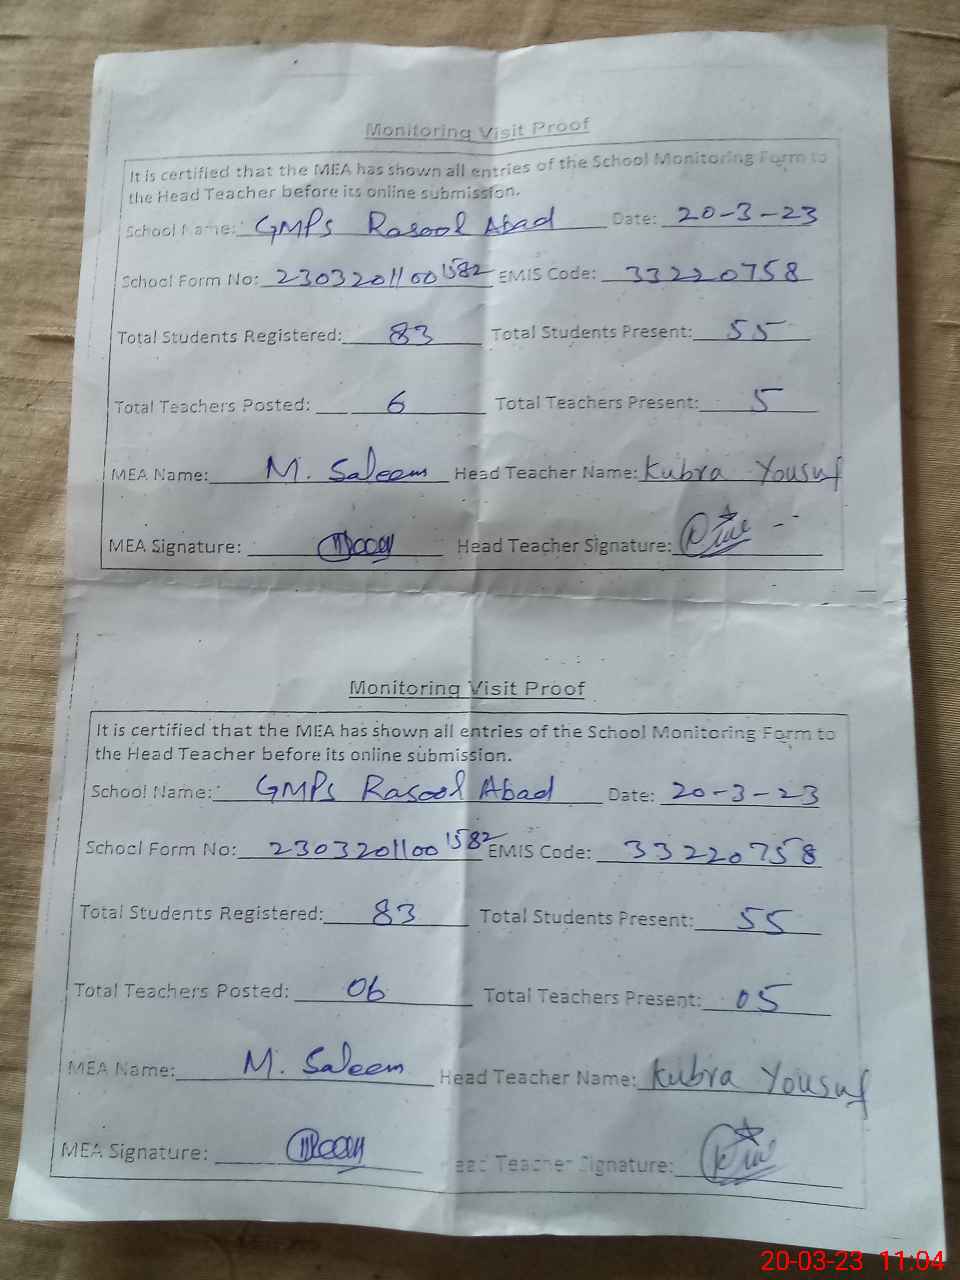 Monitoring Visit Proof
It is certified that the MEA has shown all entries of the School Monitoring Form to
the Head Teacher before its online submission.
School Name: GMPS Rasool Abad Date: 20-3-23
School Form No: 23032011001582 EMIS Code: 33220758
Total Students Registered: 83 Total Students Present: 55
Total Teachers Posted: 6 Total Teachers Present: 5
MEA Name: M. Saleem Head Teacher Name: Kubra Yousuf
MEA Signature: Head Teacher Signature:
Monitoring Visit Proof
It is certified that the MEA has shown all entries of the School Monitoring Form to
the Head Teacher before its online submission.
School Name: GMPS Rasool Abad Date: 20-3-23
School Form No: 23032011001582 EMIS Code: 33220758
Total Students Registered: 83 Total Students Present: 55
Total Teachers Posted: 06 Total Teachers Present: 05
MEA Name: M. Saleem Head Teacher Name: Kubra Yousuf
MEA Signature: Head Teacher Signature:
20-03-23 11:04